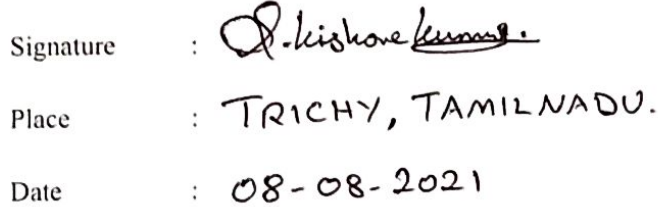 Signature : S. kishore kumar.
Place : TRICHY, TAMILNADU.
Date : 08-08-2021